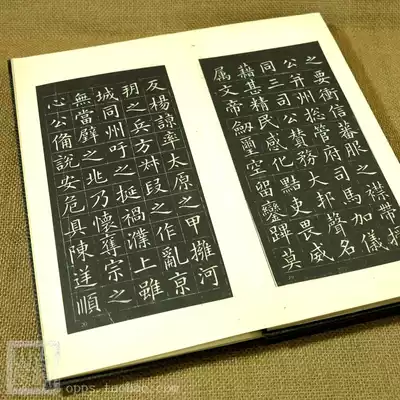 之要衝信蕃服之襟帶授
公并州揔管府司馬加儀
同三司公贊務大邦聲名
藉甚精民感化黠吏畏威
属文帝劒璽空留鑾蹕莫
反楊諒率太原之甲擁河
朔之兵方叔段之作亂京
城同州吁之挻禍濮上雖
無當璧之兆乃懷奪宗之
心公備說安危具陳逆順
opps.taobao.com